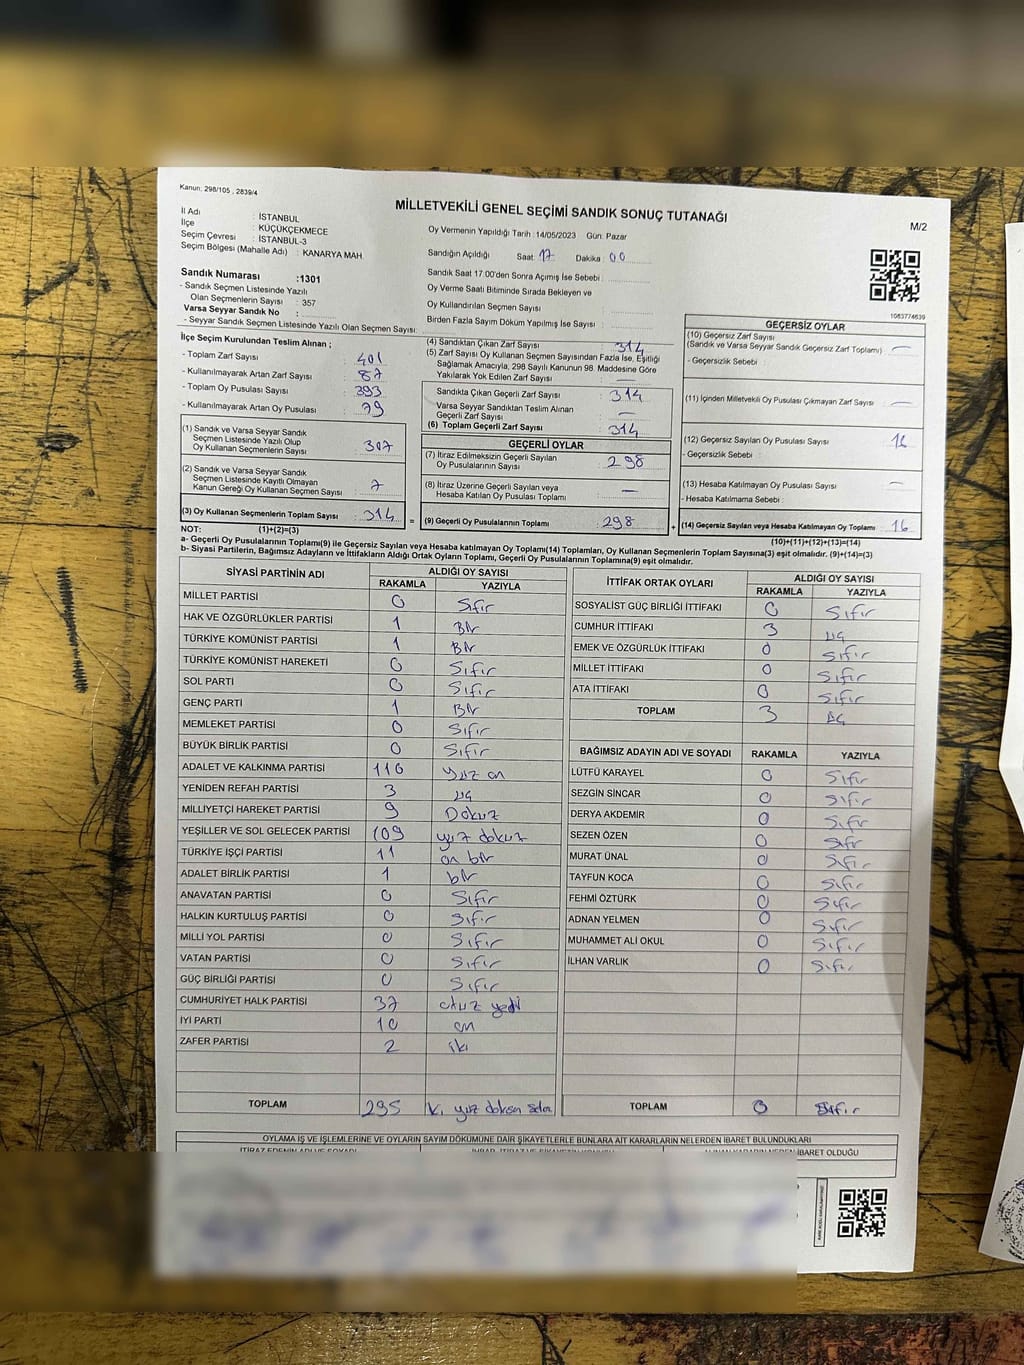 Kanun: 298/105 , 2839/4
MİLLETVEKİLİ GENEL SEÇİMİ SANDIK SONUÇ TUTANAĞI
M/2
İl Adı : İSTANBUL
İlçe : KÜÇÜKÇEKMECE
Seçim Çevresi : İSTANBUL-3
Seçim Bölgesi (Mahalle Adı) : KANARYA MAH.
Oy Vermenin Yapıldığı Tarih :14/05/2023 Gün: Pazar
Sandığın Açıldığı Saat: 17 Dakika : 00
Sandık Saat 17.00'den Sonra Açılmış İse Sebebi :
Oy Verme Saati Bitiminde Sırada Bekleyen ve
Oy Kullandırılan Seçmen Sayısı :
Birden Fazla Sayım Döküm Yapılmış İse Sayısı :
1063774639
Sandık Numarası :1301
- Sandık Seçmen Listesinde Yazılı
Olan Seçmenlerin Sayısı : 357
Varsa Seyyar Sandık No :
- Seyyar Sandık Seçmen Listesinde Yazılı Olan Seçmen Sayısı:
İlçe Seçim Kurulundan Teslim Alınan ;
- Toplam Zarf Sayısı : 401
- Kullanılmayarak Artan Zarf Sayısı : 87
- Toplam Oy Pusulası Sayısı : 393
- Kullanılmayarak Artan Oy Pusulası : 79
(1) Sandık ve Varsa Seyyar Sandık
Seçmen Listesinde Yazılı Olup
Oy Kullanan Seçmenlerin Sayısı : 307
(2) Sandık ve Varsa Seyyar Sandık
Seçmen Listesinde Kayıtlı Olmayan
Kanun Gereği Oy Kullanan Seçmen Sayısı : 7
(3) Oy Kullanan Seçmenlerin Toplam Sayısı : 314
(4) Sandıktan Çıkan Zarf Sayısı : 314
(5) Zarf Sayısı Oy Kullanan Seçmen Sayısından Fazla İse, Eşitliği
Sağlamak Amacıyla, 298 Sayılı Kanunun 98. Maddesine Göre
Yakılarak Yok Edilen Zarf Sayısı : —
Sandıkta Çıkan Geçerli Zarf Sayısı : 314
Varsa Seyyar Sandıktan Teslim Alınan
Geçerli Zarf Sayısı : —
(6) Toplam Geçerli Zarf Sayısı : 314
GEÇERLİ OYLAR
(7) İtiraz Edilmeksizin Geçerli Sayılan
Oy Pusulalarının Sayısı : 298
(8) İtiraz Üzerine Geçerli Sayılan veya
Hesaba Katılan Oy Pusulası Toplamı : —
= (9) Geçerli Oy Pusulalarının Toplamı : 298
GEÇERSİZ OYLAR
(10) Geçersiz Zarf Sayısı
(Sandık ve Varsa Seyyar Sandık Geçersiz Zarf Toplamı) : —
- Geçersizlik Sebebi :
(11) İçinden Milletvekili Oy Pusulası Çıkmayan Zarf Sayısı : —
(12) Geçersiz Sayılan Oy Pusulası Sayısı : 16
- Geçersizlik Sebebi :
(13) Hesaba Katılmayan Oy Pusulası Sayısı : —
- Hesaba Katılmama Sebebi :
+ (14) Geçersiz Sayılan veya Hesaba Katılmayan Oy Toplamı : 16
NOT: (1)+(2)=(3)
(10)+(11)+(12)+(13)=(14)
a- Geçerli Oy Pusulalarının Toplamı(9) ile Geçersiz Sayılan veya Hesaba katılmayan Oy Toplamı(14) Toplamları, Oy Kullanan Seçmenlerin Toplam Sayısına(3) eşit olmalıdır. (9)+(14)=(3)
b- Siyasi Partilerin, Bağımsız Adayların ve İttifakların Aldığı Ortak Oyların Toplamı, Geçerli Oy Pusulalarının Toplamına(9) eşit olmalıdır.
SİYASİ PARTİNİN ADI ALDIĞI OY SAYISI
RAKAMLA YAZIYLA
MİLLET PARTİSİ 0 Sıfır
HAK VE ÖZGÜRLÜKLER PARTİSİ 1 Bir
TÜRKİYE KOMÜNİST PARTİSİ 1 Bir
TÜRKİYE KOMÜNİST HAREKETİ 0 Sıfır
SOL PARTİ 0 Sıfır
GENÇ PARTİ 1 Bir
MEMLEKET PARTİSİ 0 Sıfır
BÜYÜK BİRLİK PARTİSİ 0 Sıfır
ADALET VE KALKINMA PARTİSİ 110 yüz on
YENİDEN REFAH PARTİSİ 3 üç
MİLLİYETÇİ HAREKET PARTİSİ 9 Dokuz
YEŞİLLER VE SOL GELECEK PARTİSİ 109 yüz dokuz
TÜRKİYE İŞÇİ PARTİSİ 11 on bir
ADALET BİRLİK PARTİSİ 1 bir
ANAVATAN PARTİSİ 0 Sıfır
HALKIN KURTULUŞ PARTİSİ 0 Sıfır
MİLLİ YOL PARTİSİ 0 Sıfır
VATAN PARTİSİ 0 Sıfır
GÜÇ BİRLİĞİ PARTİSİ 0 Sıfır
CUMHURİYET HALK PARTİSİ 37 otuz yedi
İYİ PARTİ 10 on
ZAFER PARTİSİ 2 iki
TOPLAM 295 yüz doksan
İTTİFAK ORTAK OYLARI ALDIĞI OY SAYISI
RAKAMLA YAZIYLA
SOSYALİST GÜÇ BİRLİĞİ İTTİFAKI 0 Sıfır
CUMHUR İTTİFAKI 3 üç
EMEK VE ÖZGÜRLÜK İTTİFAKI 0 Sıfır
MİLLET İTTİFAKI 0 Sıfır
ATA İTTİFAKI 0 Sıfır
TOPLAM 3 üç
BAĞIMSIZ ADAYIN ADI VE SOYADI RAKAMLA YAZIYLA
LÜTFÜ KARAYEL 0 Sıfır
SEZGİN SİNCAR 0 Sıfır
DERYA AKDEMİR 0 Sıfır
SEZEN ÖZEN 0 Sıfır
MURAT ÜNAL 0 Sıfır
TAYFUN KOCA 0 Sıfır
FEHMİ ÖZTÜRK 0 Sıfır
ADNAN YELMEN 0 Sıfır
MUHAMMET ALİ OKUL 0 Sıfır
İLHAN VARLIK 0 Sıfır
TOPLAM 0 Sıfır
OYLAMA İŞ VE İŞLEMLERİNE VE OYLARIN SAYIM DÖKÜMÜNE DAİR ŞİKAYETLERLE BUNLARA AİT KARARLARIN NELERDEN İBARET BULUNDUKLARI
İBARET OLDUĞU